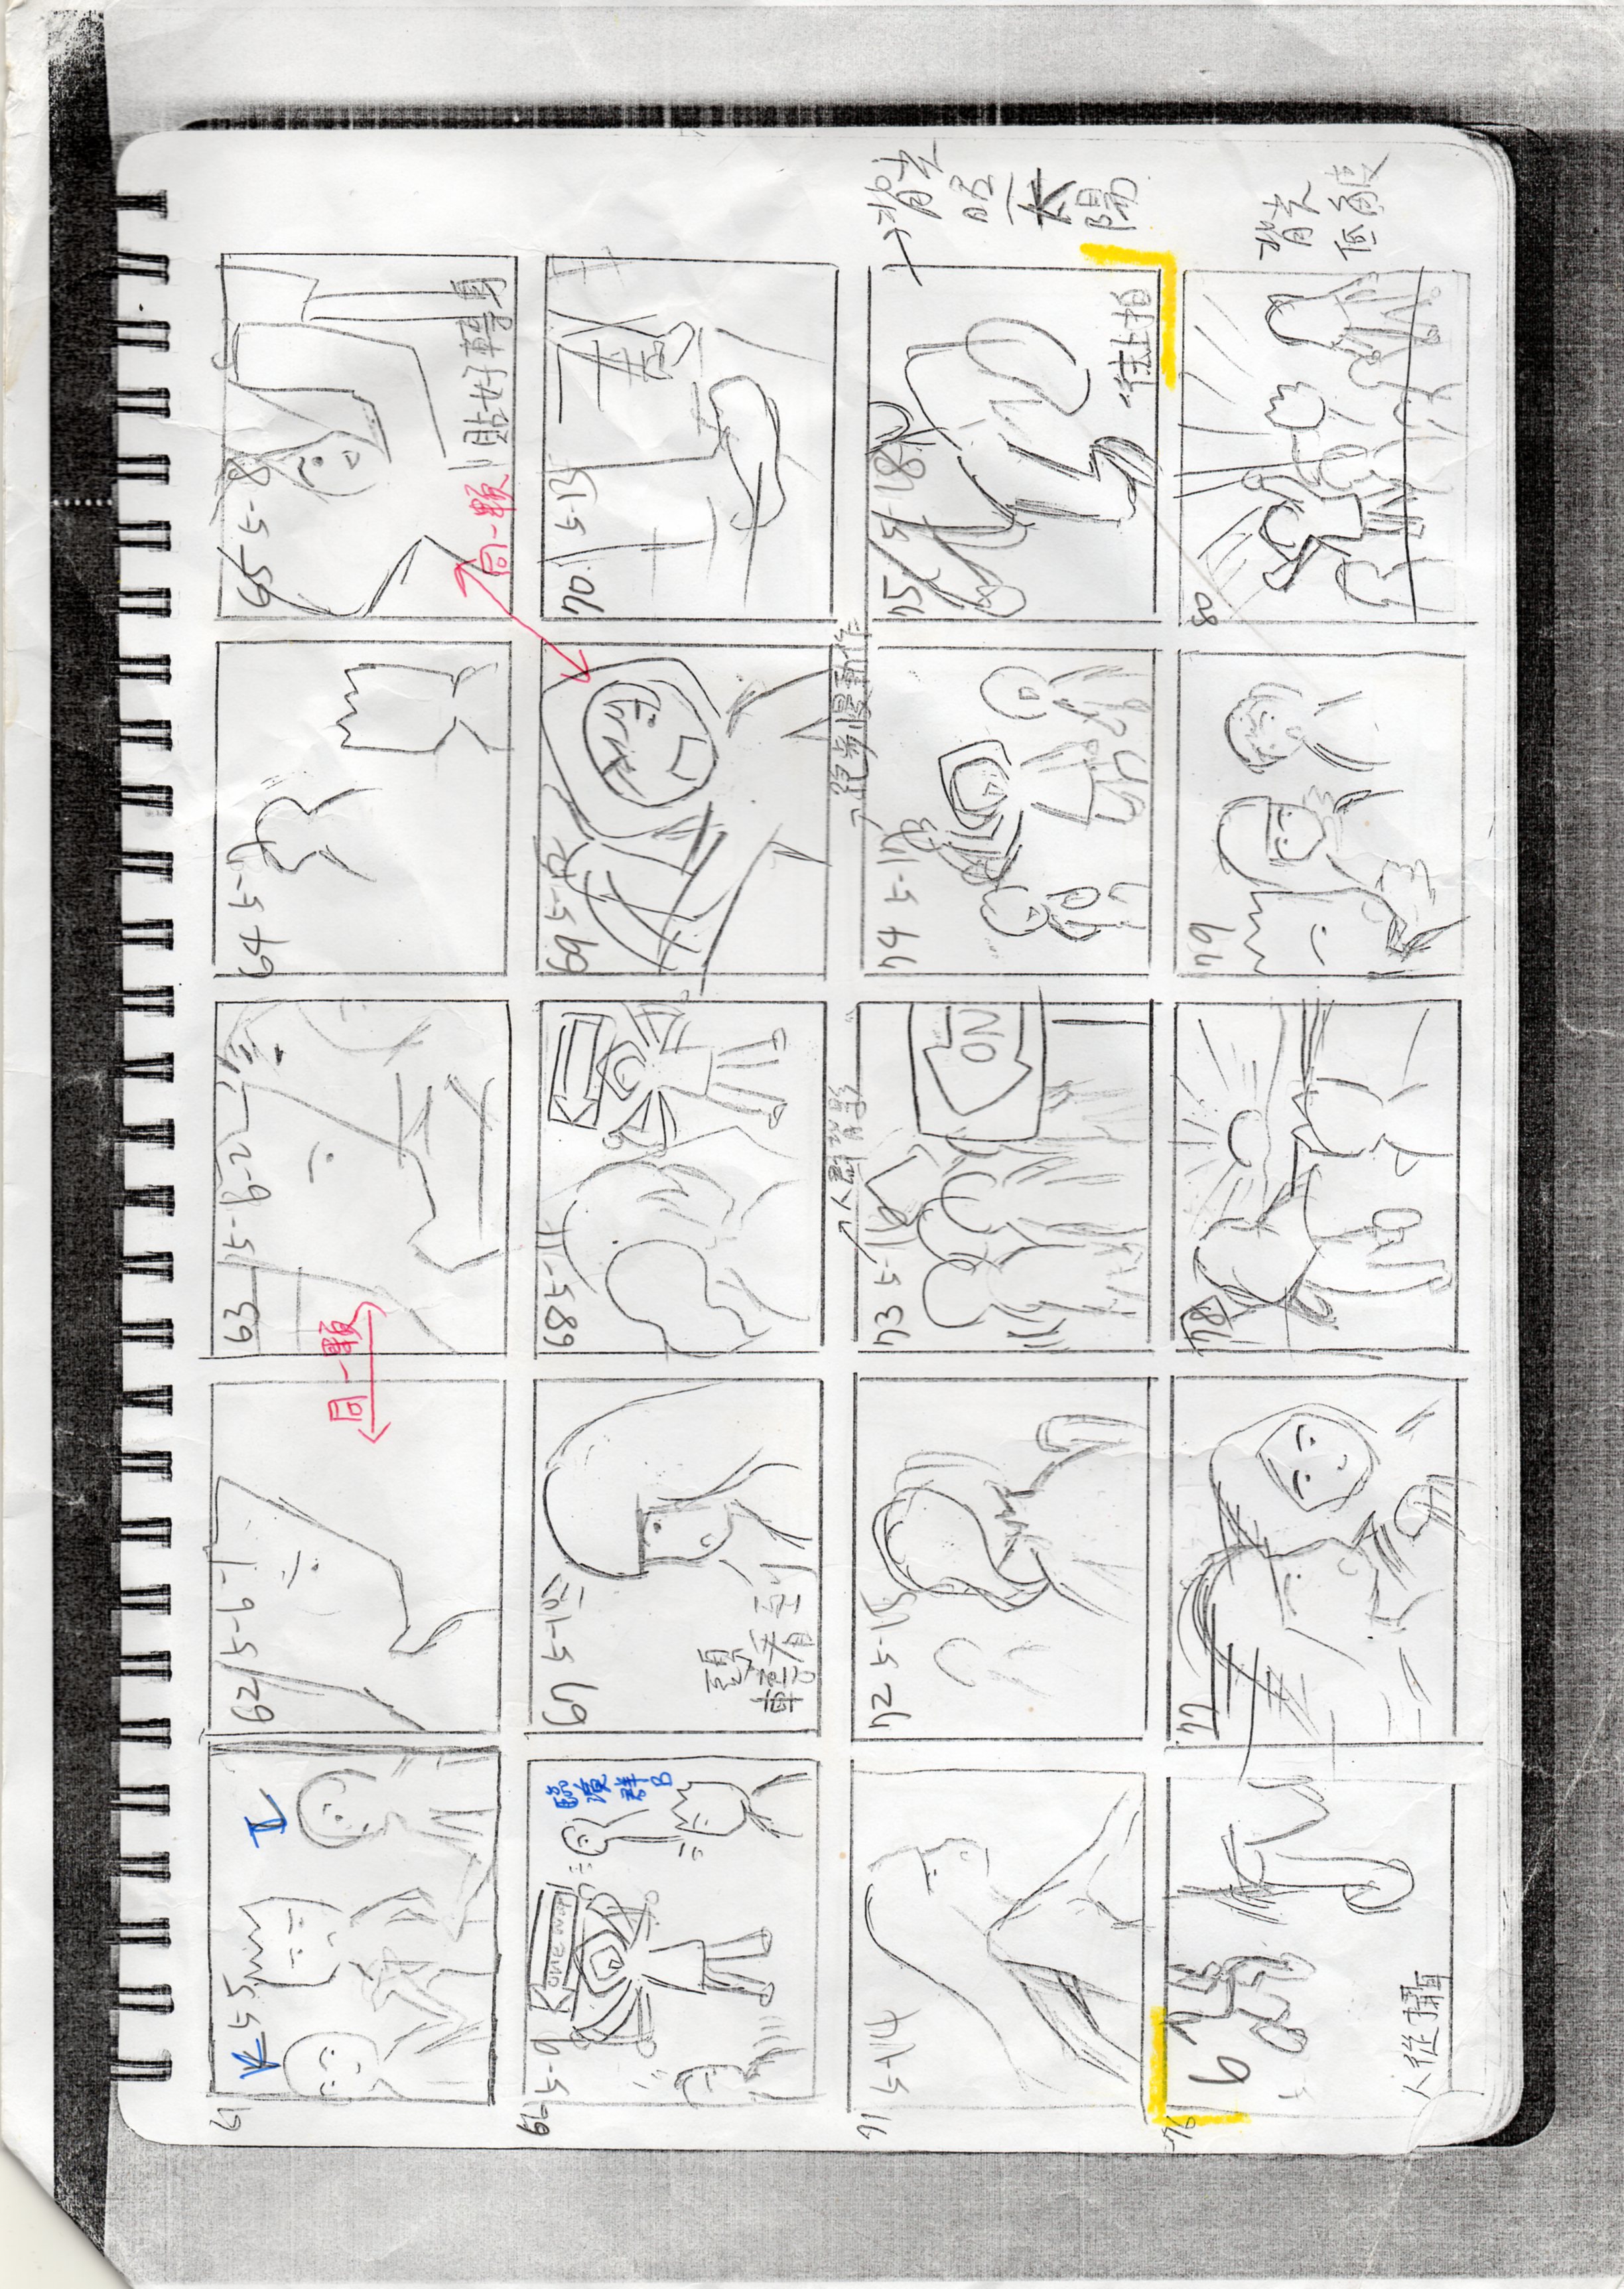 61
K
5-5
I
62
5-6-1
同一顆
63
5-6-2
64
5-7
65
5-8
同一顆
貼好轉身
66
5-9
ONE WAY
臨演群B
67
5-10
頭
轉看到
68
5-11
69
5-12
70
5-13
71
5-14
72
5-15
人群背影
73
5-16
跑步慢動作
74
5-17
75
5-18
往上拍
背光
太陽
76
6
人從攝
77
78
79
80
背光
低角度